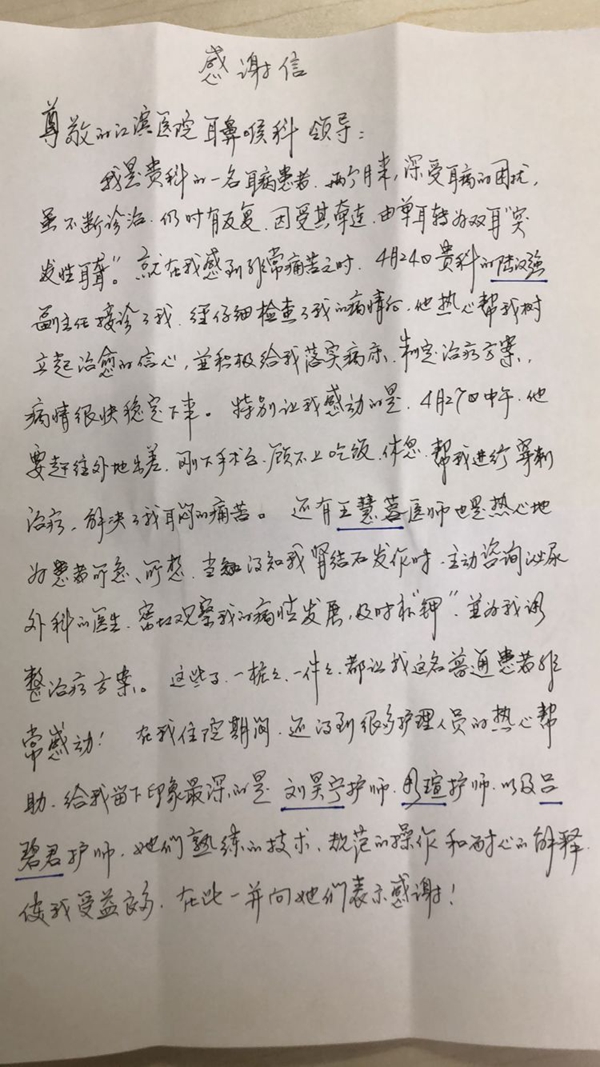 感谢信
尊敬的江滨医院耳鼻喉科领导：
我是贵科的一名耳病患者，两个月来，深受耳病的困扰，
虽不断诊治，仍时有反复，因受其牵连，由单耳转为双耳“突
发性耳聋”。就在我感到非常痛苦之时，4月24日贵科的陆汉强
副主任接诊了我，经仔细检查了我的病情后，他热心帮我树
立起治愈的信心，並积极给我落实病床、制定治疗方案，
病情很快稳定下来。特别让我感动的是，4月27日中午，他
要赶往外地出差，刚下手术台，顾不上吃饭、休息，帮我进行穿刺
治疗，解决了我耳闷的痛苦。还有王慧蓉医师也是热心地
为患者所急、所想，当得知我肾结石发作时，主动咨询泌尿
外科的医生，密切观察我的病情发展，及时补“钾”，並为我调
整治疗方案。这些了，一桩之、一件之，都让我这名普通患者非
常感动！在我住院期间，还得到很多护理人员的热心帮
助，给我留下印象最深的是刘昊宁护师，彤瑄护师，以及吕
碧君护师，她们熟练的技术、规范的操作和耐心的解释，
使我受益良多，在此一并向她们表示感谢！